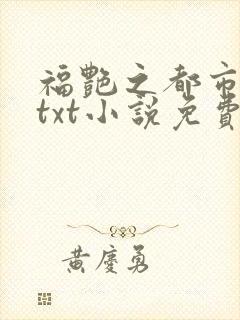 福艷之都市
txt小說免費
黃慶勇